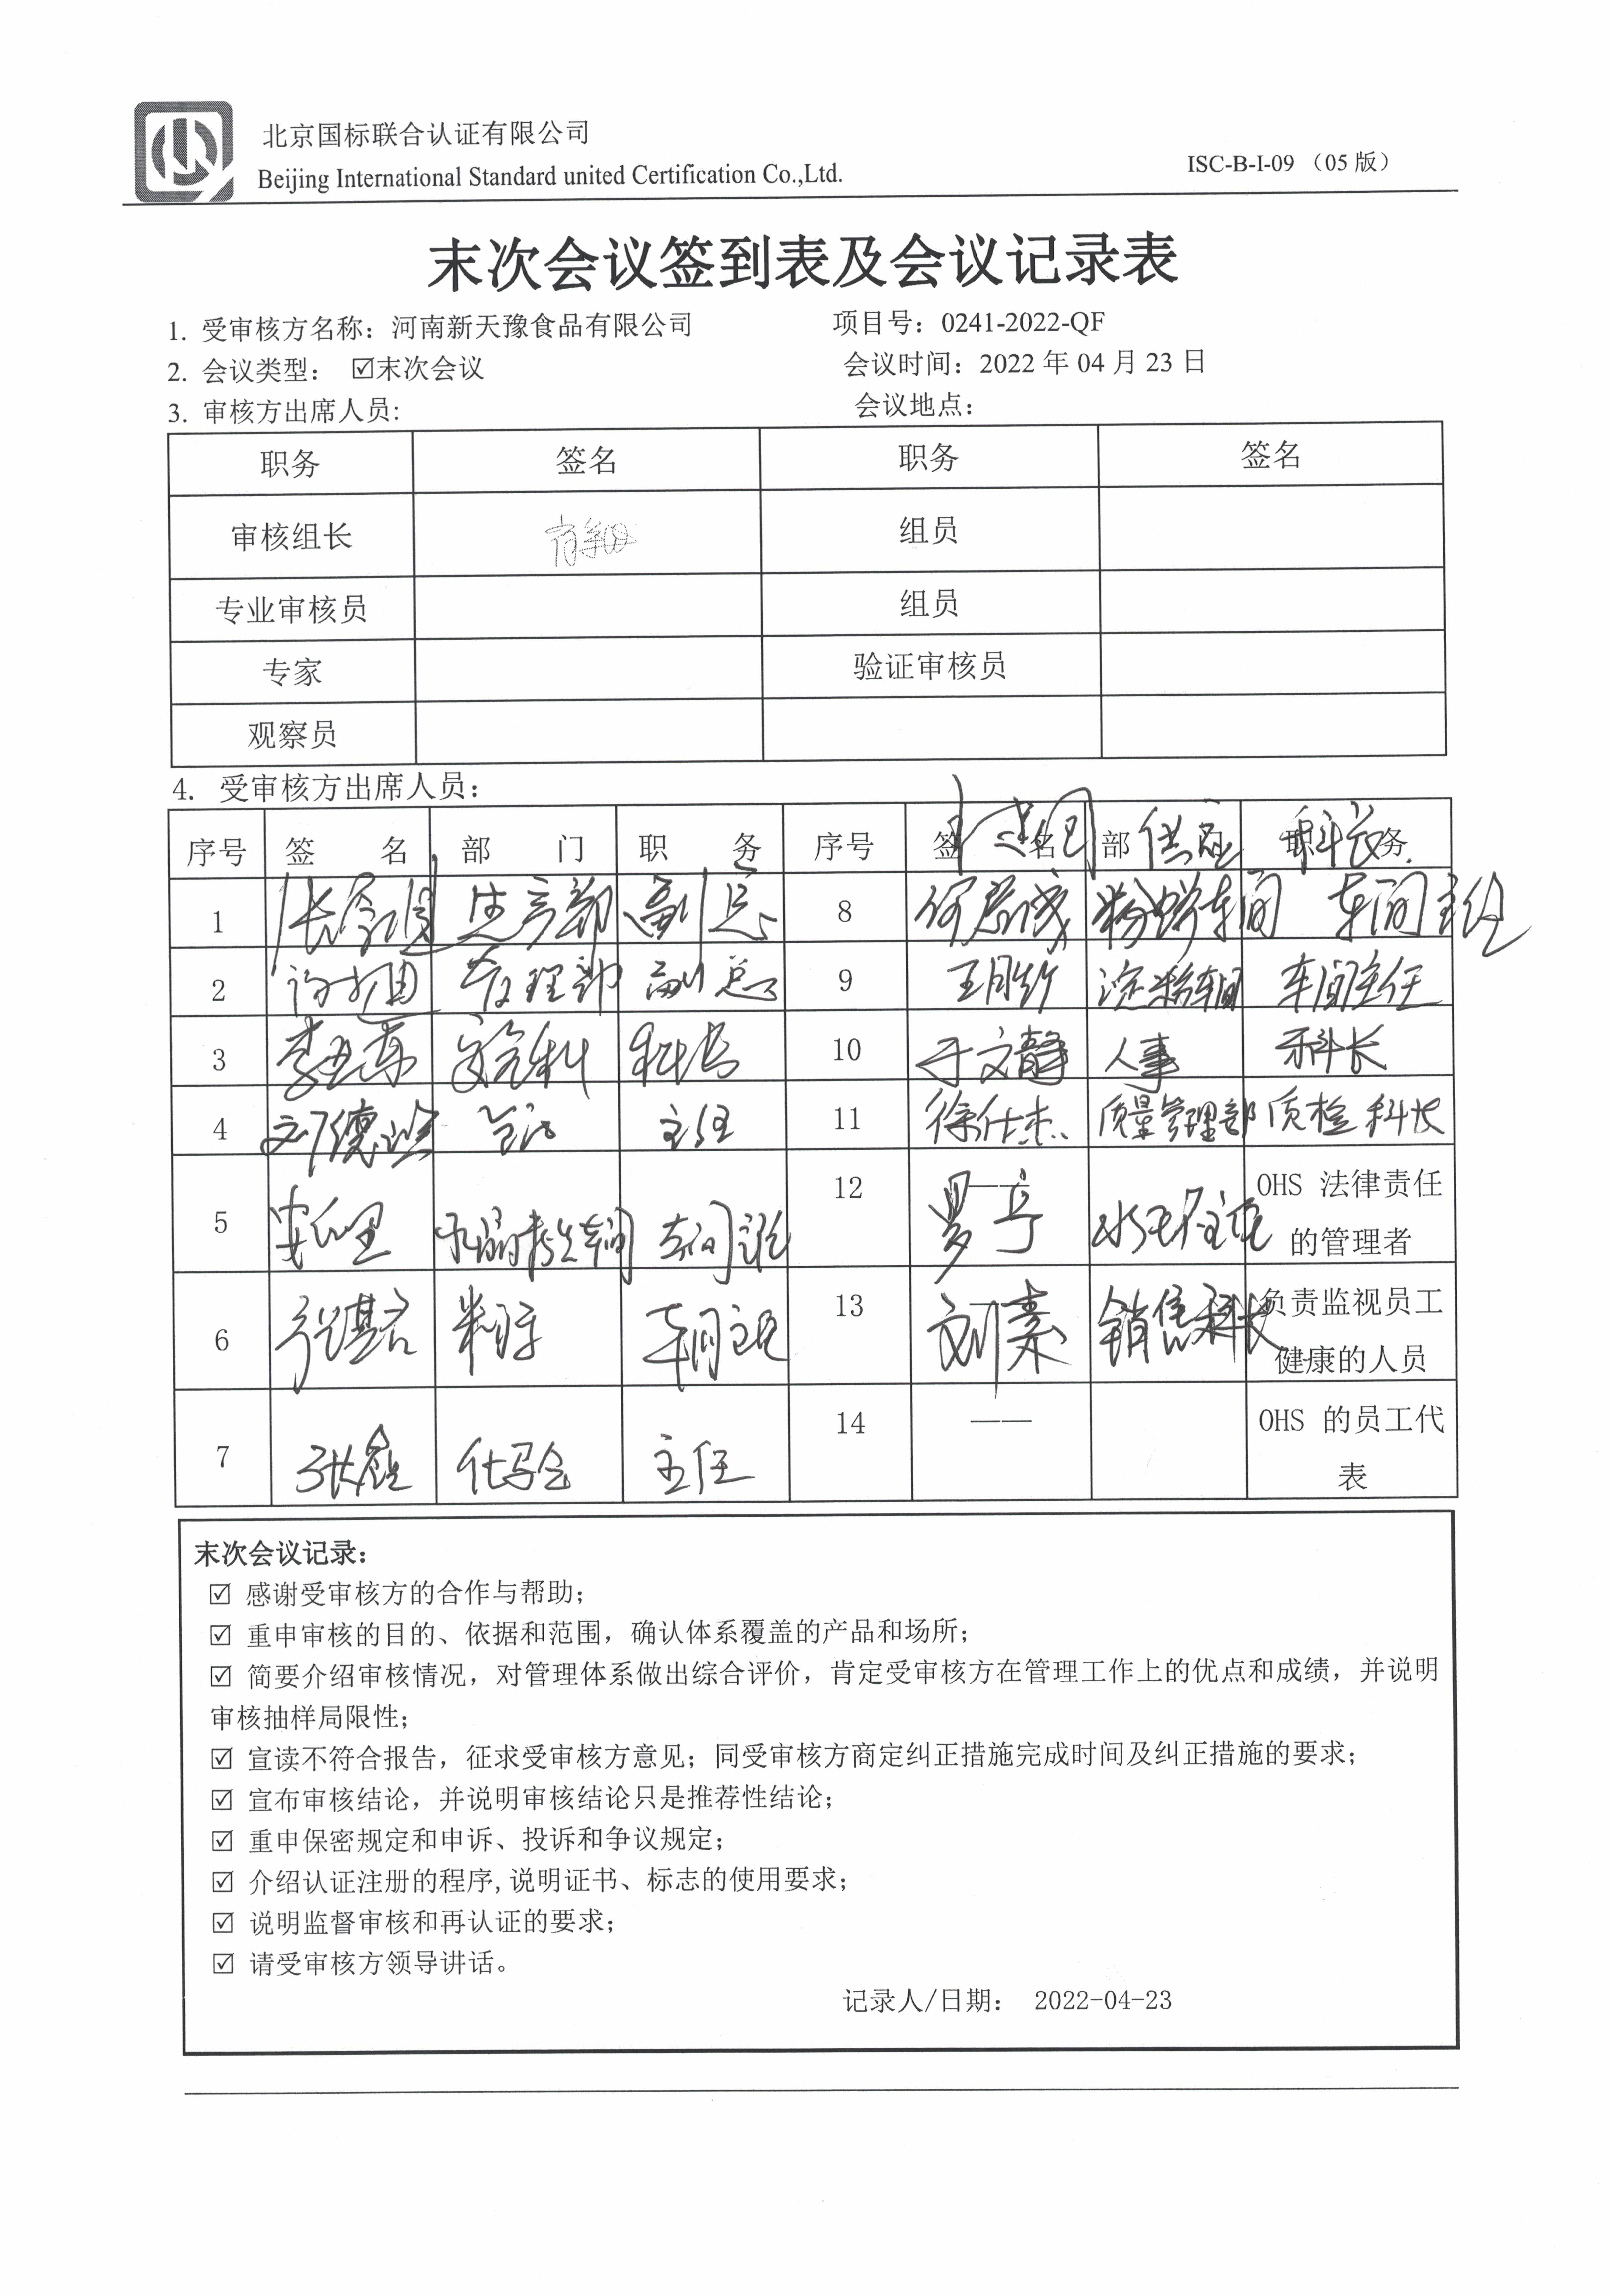 北京国标联合认证有限公司
Beijing International Standard united Certification Co.,Ltd.
ISC-B-I-09（05版）
末次会议签到表及会议记录表
1. 受审核方名称：河南新天豫食品有限公司 项目号：0241-2022-QF
2. 会议类型： ☑末次会议 会议时间：2022 年 04 月 23 日
3. 审核方出席人员: 会议地点：
职务 签名 职务 签名
审核组长 组员
专业审核员 组员
专家 验证审核员
观察员
4. 受审核方出席人员：
供应 科长
序号 签 名 部 门 职 务 序号 签 名 部 门 职 务
1 生产部 副总 8 车间 车间主任
2 管理部 副总 9 王月竹 淀粉车间 车间主任
3 科长 10 于文静 人事 科长
4 主任 11 徐仕杰 质量管理部 质检科长
5 12 —— OHS 法律责任
的管理者
6 车间主任 13 刘素 销售科长 负责监视员工
健康的人员
7 化验室 主任 14 —— OHS 的员工代
表
末次会议记录：
☑ 感谢受审核方的合作与帮助；
☑ 重申审核的目的、依据和范围，确认体系覆盖的产品和场所；
☑ 简要介绍审核情况，对管理体系做出综合评价，肯定受审核方在管理工作上的优点和成绩，并说明
审核抽样局限性；
☑ 宣读不符合报告，征求受审核方意见；同受审核方商定纠正措施完成时间及纠正措施的要求；
☑ 宣布审核结论，并说明审核结论只是推荐性结论；
☑ 重申保密规定和申诉、投诉和争议规定；
☑ 介绍认证注册的程序,说明证书、标志的使用要求；
☑ 说明监督审核和再认证的要求；
☑ 请受审核方领导讲话。
记录人/日期： 2022-04-23